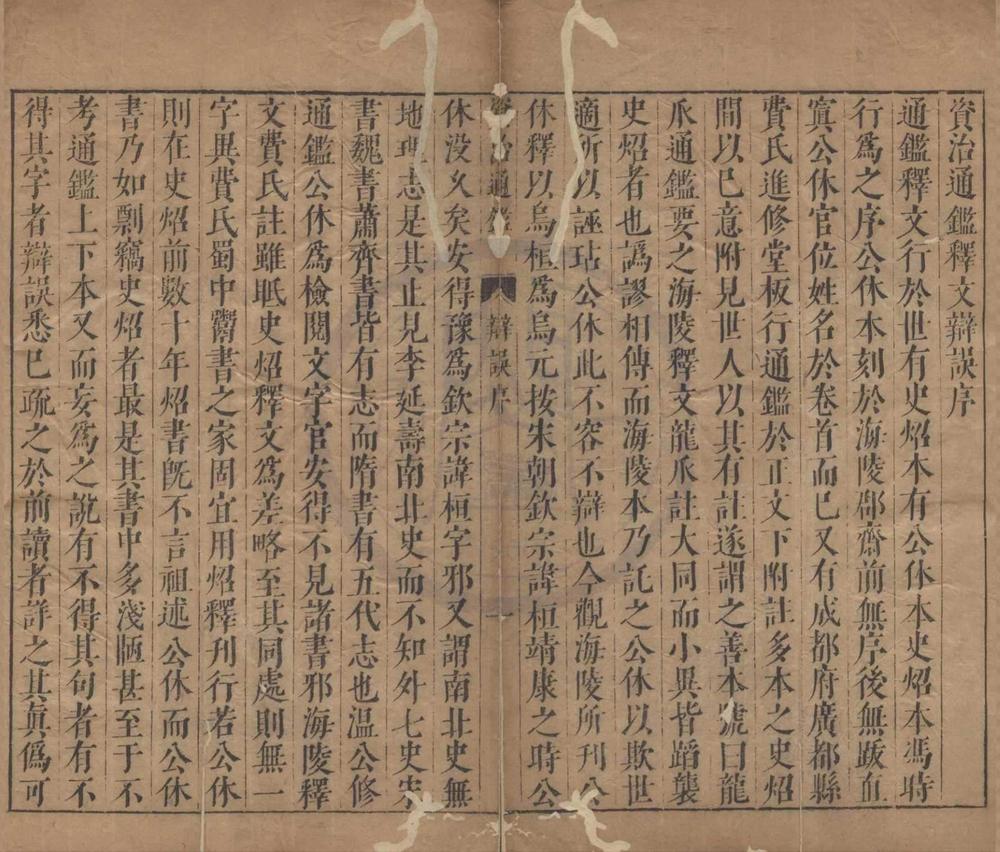 資治通鑑釋文辯誤序
通鑑釋文行於世有史炤本有公休本史炤本馮時
行爲之序公休本刻於海陵郡齋前無序後無跋直
寘公休官位姓名於卷首而已又有成都府廣都縣
費氏進修堂板行通鑑於正文下附註多本之史炤
間以已意附見世人以其有註遂謂之善本號曰龍
爪通鑑要之海陵釋文龍爪註大同而小異皆蹈襲
史炤者也譌謬相傳而海陵本乃託之公休以欺世
適所以誣玷公休此不容不辯也今觀海陵所刊公
休釋以烏桓爲烏元按宋朝欽宗諱桓靖康之時公
資治通鑑 辯誤序 一
休没久矣安得豫爲欽宗諱桓字邪又謂南北史無
地理志是其止見李延壽南北史而不知外七史宋
書魏書蕭齊書皆有志而隋書有五代志也温公修
通鑑公休爲檢閱文字官安得不見諸書邪海陵釋
文費氏註雖眂史炤釋文爲差略至其同處則無一
字異費氏蜀中鬻書之家固宜用炤釋刊行若公休
則在史炤前數十年炤書旣不言祖述公休而公休
書乃如剽竊史炤者最是其書中多淺陋甚至于不
考通鑑上下本文而妄爲之說有不得其句者有不
得其字者辯誤悉已疏之於前讀者詳之其眞僞可